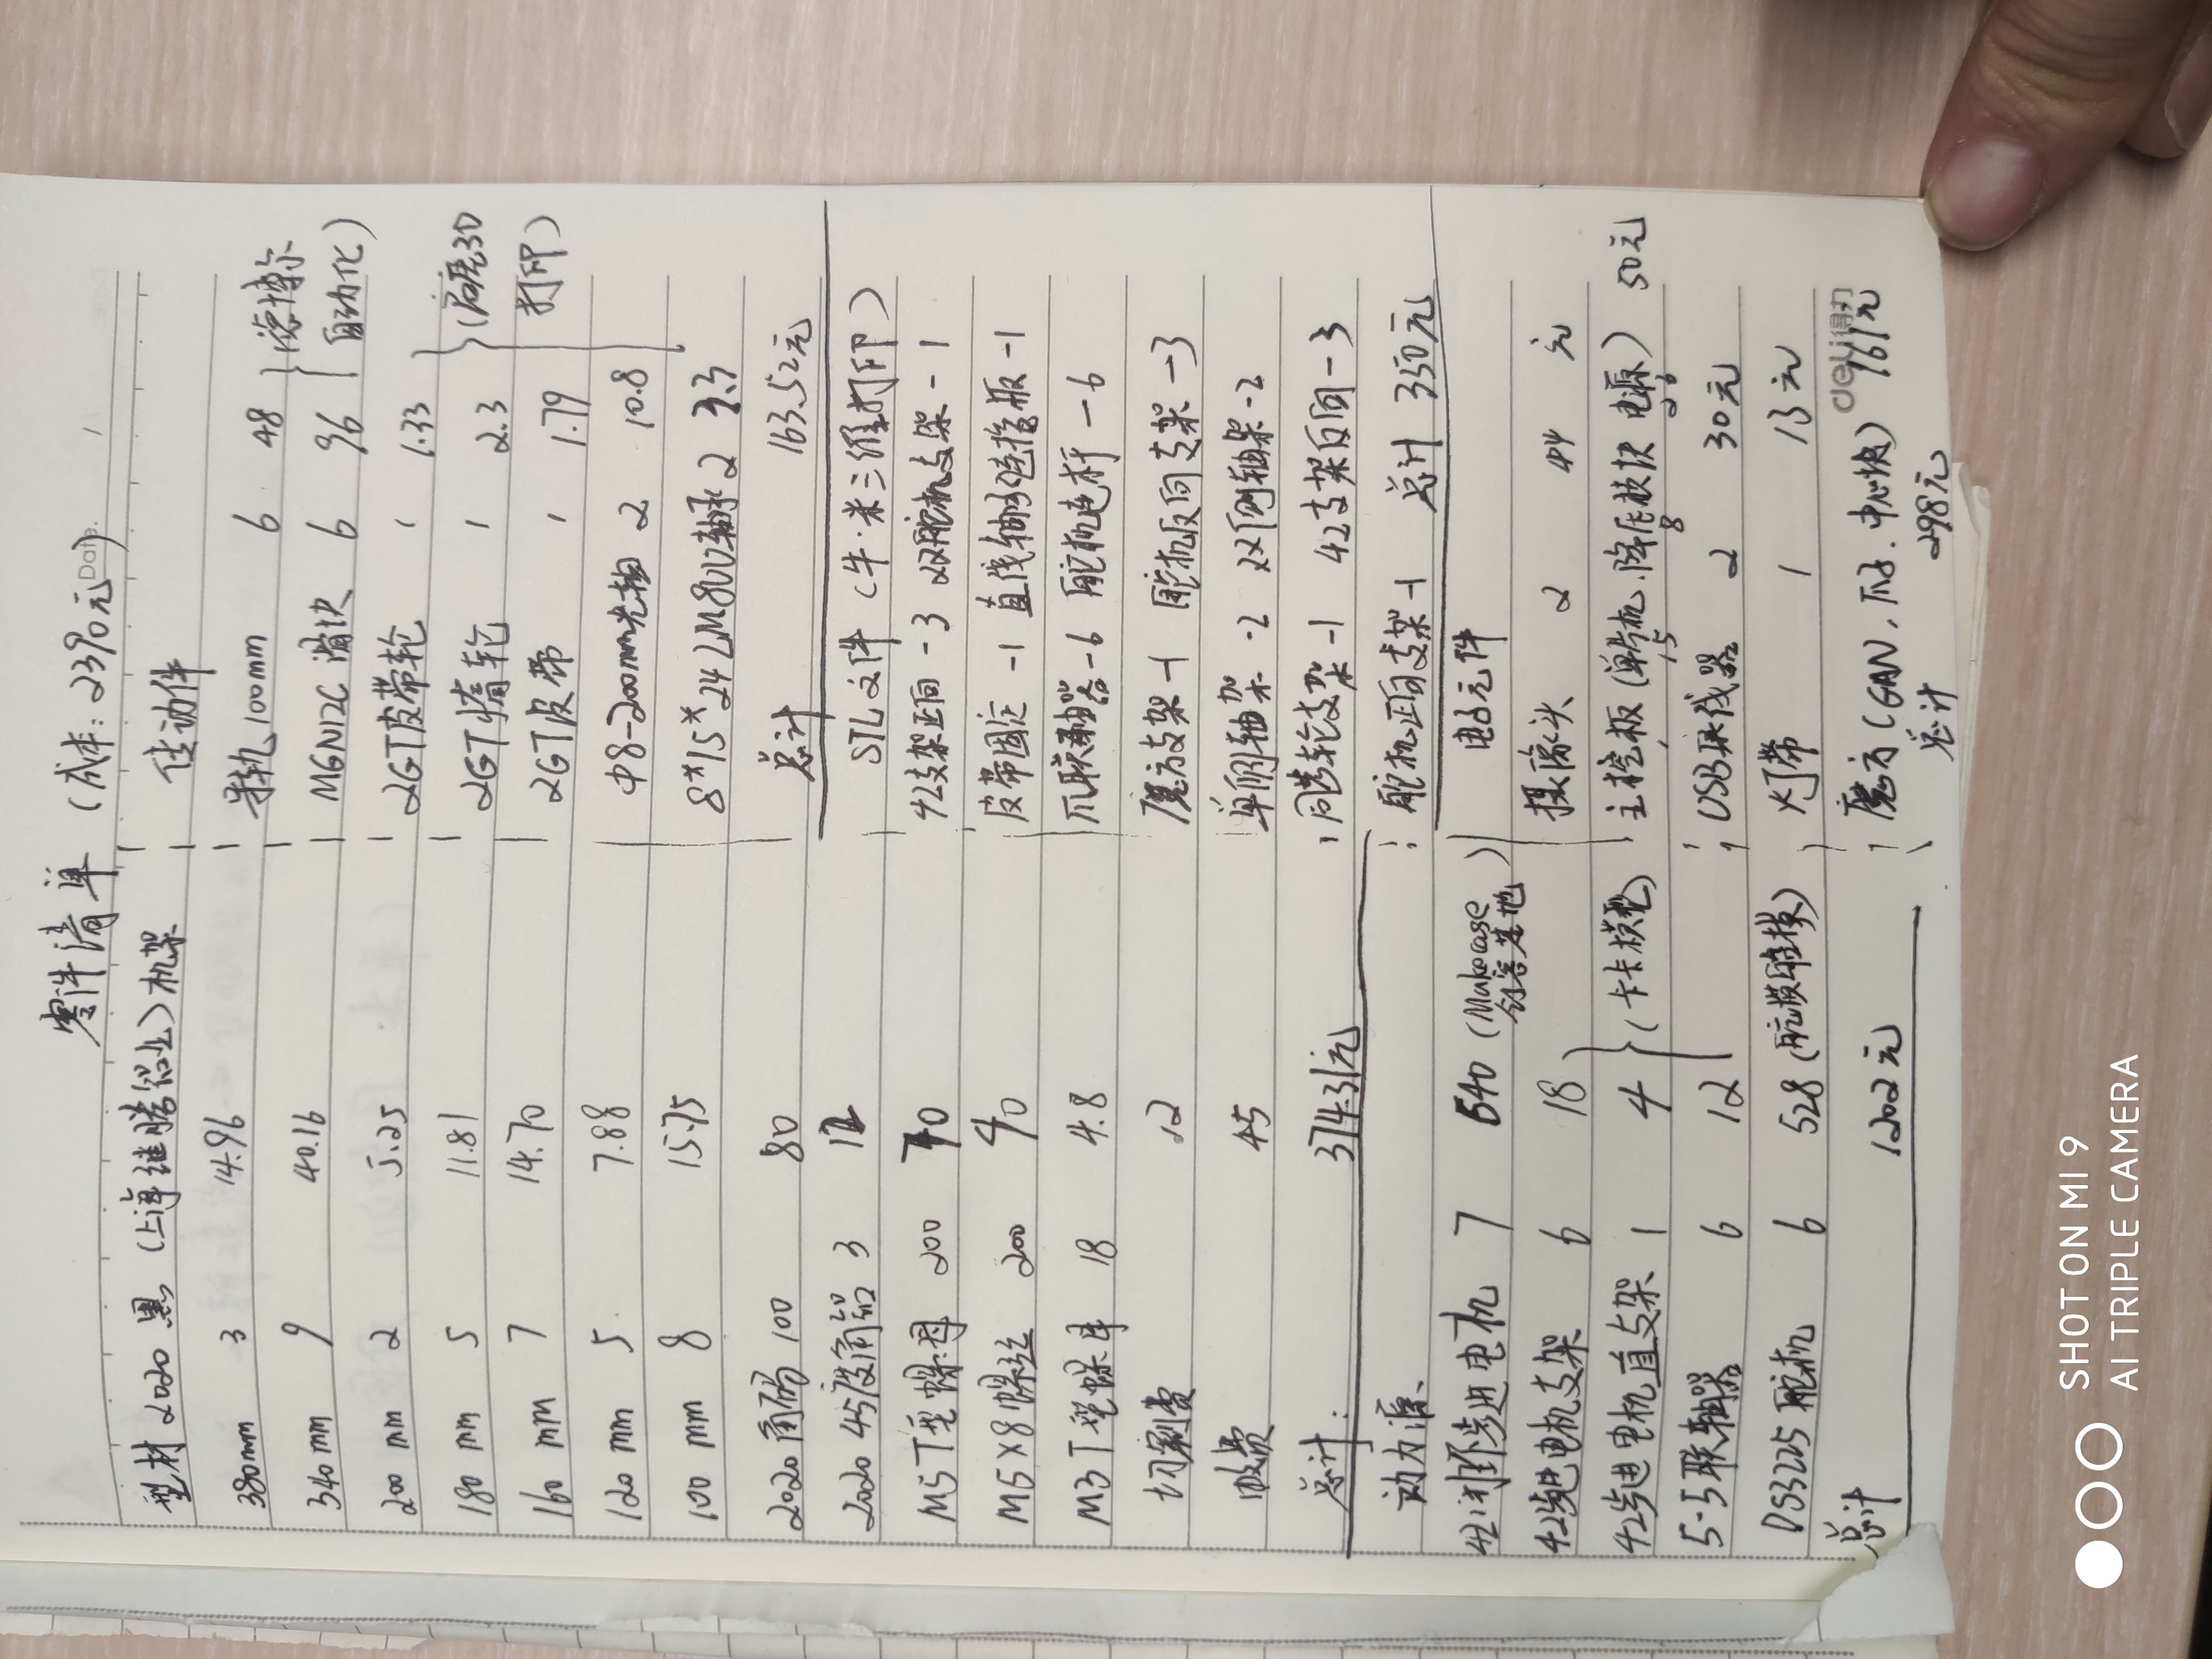 零件清单 (成本：2390元)
Date.
型材 2020 黑 (上海继腾铝业) 机架
380mm 3 14.96
340mm 9 40.16
200 mm 2 5.25
180 mm 5 11.81
160 mm 7 14.70
120 mm 5 7.88
100 mm 8 15.75
2020 角码 100 80
2020 45度角铝 3 12
M5 T型螺母 200 70
M5×8 螺丝 200 40
M3 T型螺母 18 4.8
切割费 12
邮费 45
总计： 374.31元
动力源
42闭环步进电机 7 640 (Makerase 创客基地)
42步进电机支架 6 18
42步进电机直支架 1 4 (卡卡模型)
5-5联轴器 6 12
DS3225舵机 6 528 (航模)
总计 1202元
传动件
导轨100mm 6 48 (德博尔
MGN12C 滑块 6 96 自动化)
2GT皮带轮 1 1.33
2GT惰轮 1 2.3 3D
2GT皮带 1 1.79 打印)
Φ8-200mm光轴 2 10.8
8*15*24 LM8UU轴承 2 3.3
总计 163.52元
STL文件 (牛·米三维打印)
42支架正向 -3 双舵机支架 -1
皮带固定 -1 直线轴承连接板 -1
爪联轴器 -6 舵机连杆 -6
魔方支架 -1 舵机反向支架 -3
单侧轴架 -2 双侧轴架 -2
同步轮支架 -1 42支架反向 -3
舵机正向支架 -1 总计 350元
电子元件
摄像头 2 44 元
主控板 (单片机、降压模块 电源) 50元
1 15 8 26
USB集线器 2 30元
灯带 1 13元
deli得力
魔方 (GAN, 爪子、中心块) 161元
总计 298元
SHOT ON MI 9
AI TRIPLE CAMERA